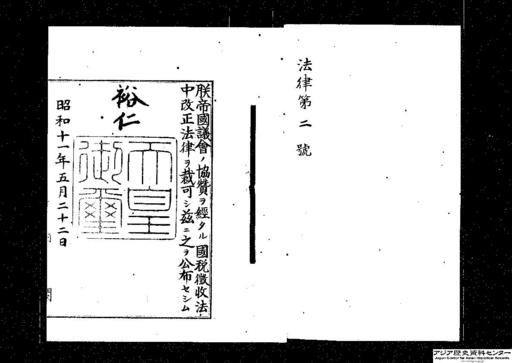 法律第二號
朕帝國議會ノ協贊ヲ經タル國税徴收法
中改正法律ヲ裁可シ茲ニ之ヲ公布セシム
裕仁
天皇御璽
昭和十一年五月二十二日
アジア歴史資料センター
Japan Center for Asian Historical Records